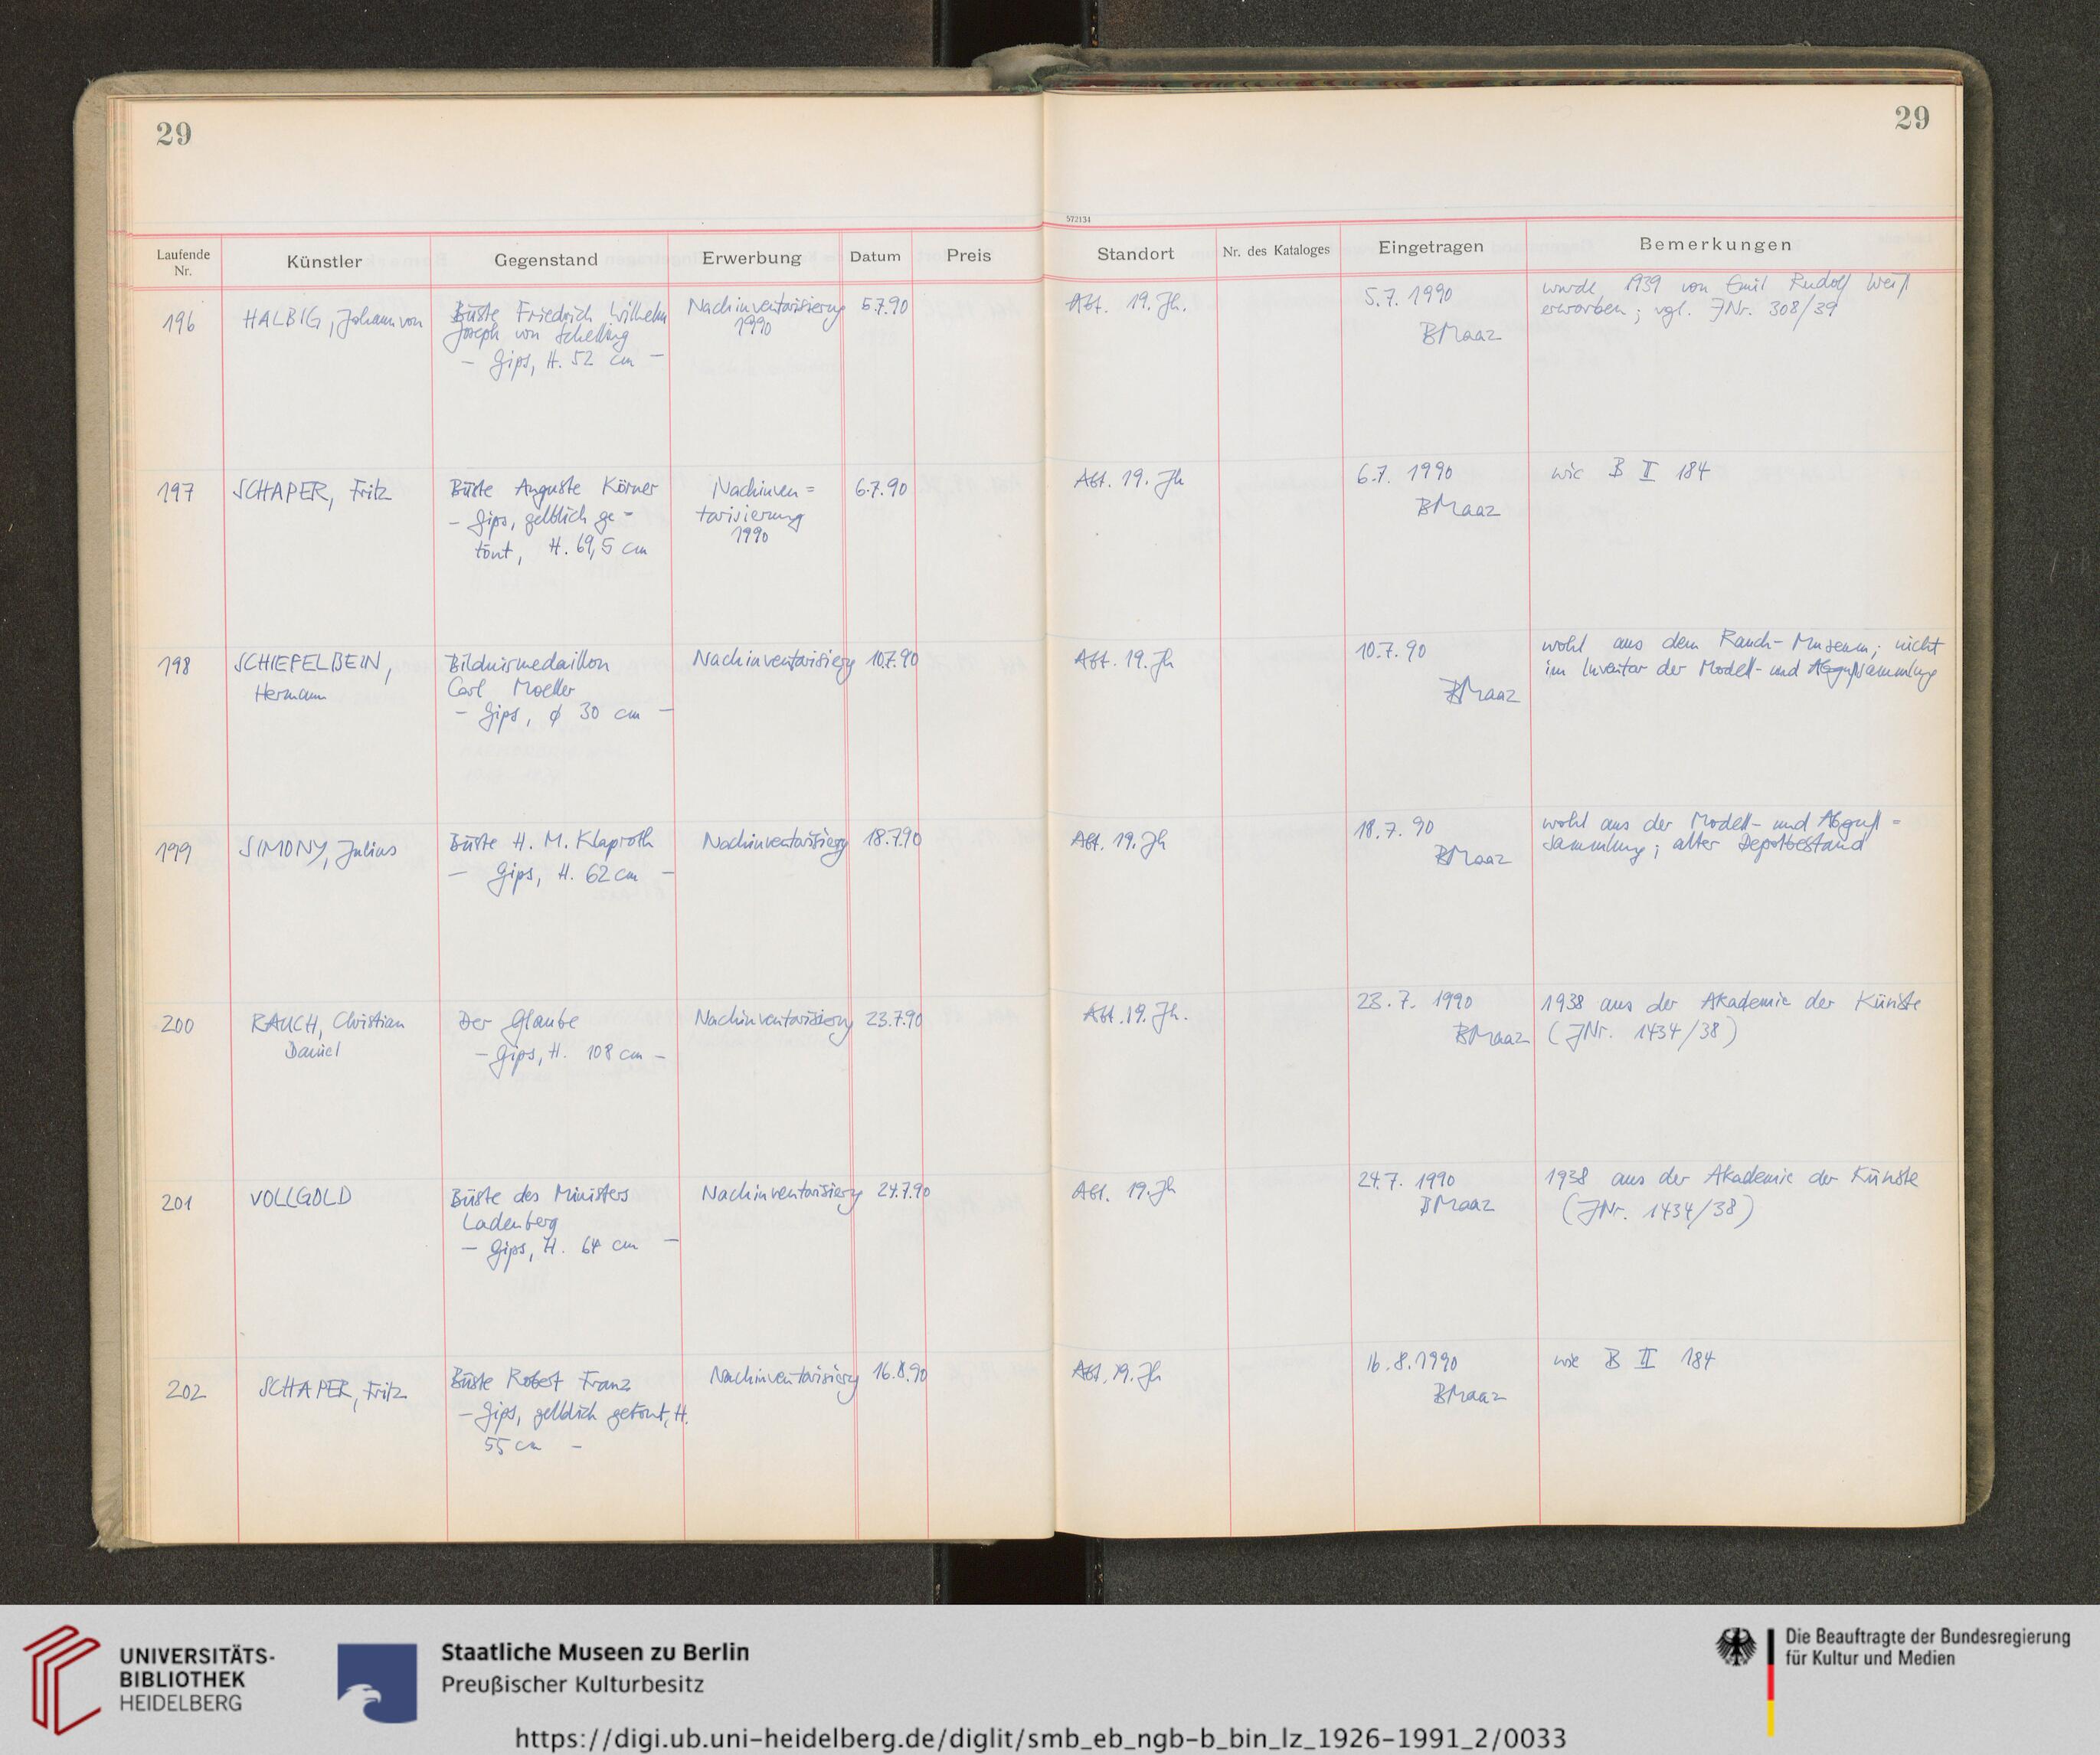 29
29
572131
Laufende Nr.
Künstler
Gegenstand
Erwerbung
Datum
Preis
Standort
Nr. des Kataloges
Eingetragen
Bemerkungen
196
HALBIG, Johann von
Büste Friedrich Wilhelm
Joseph von Schelling
- Gips, H. 52 cm -
Nachinventarisierung
1990
5.7.90
Abt. 19. Jh.
5.7.1990
BMaaz
wurde 1939 von Emil Rudolf Weiß
erworben; vgl. JNr. 308/39
197
SCHAPER, Fritz
Büste Auguste Körner
- Gips, gelblich ge-
tönt, H. 69,5 cm
Nachinven=
tarisierung
1990
6.7.90
Abt. 19. Jh
6.7. 1990
BMaaz
wie B II 184
198
SCHIEFELBEIN,
Hermann
Bildnismedaillon
Carl Moeller
- Gips, ϕ 30 cm -
Nachinventarisierg
10.7.90
Abt. 19. Jh
10.7.90
BMaaz
wohl aus dem Rauch-Museum; nicht
im Inventar der Modell- und Abgußsammlung
199
SIMONY, Julius
Büste H. M. Klaproth
- Gips, H. 62 cm -
Nachinventarisierg
18.7.90
Abt. 19. Jh
18.7.90
BMaaz
wohl aus der Modell- und Abguß=
sammlung; alter Depotbestand
200
RAUCH, Christian
Daniel
Der Glaube
- Gips, H. 108 cm -
Nachinventarisierg
23.7.90
Abt. 19. Jh.
23.7. 1990
BMaaz
1938 aus der Akademie der Künste
(JNr. 1434/38)
201
VOLLGOLD
Büste des Ministers
Ladenberg
- Gips, H. 64 cm -
Nachinventarisierg
24.7.90
Abt. 19. Jh
24.7. 1990
BMaaz
1938 aus der Akademie der Künste
(JNr. 1434/38)
202
SCHAPER, Fritz
Büste Robert Franz
- Gips, gelblich getönt, H.
55 cm -
Nachinventarisierg
16.8.90
Abt. 19. Jh
16.8.1990
BMaaz
wie B II 184
UNIVERSITÄTS-
BIBLIOTHEK
HEIDELBERG
Staatliche Museen zu Berlin
Preußischer Kulturbesitz
Die Beauftragte der Bundesregierung
für Kultur und Medien
https://digi.ub.uni-heidelberg.de/diglit/smb_eb_ngb-b_bin_lz_1926-1991_2/0033